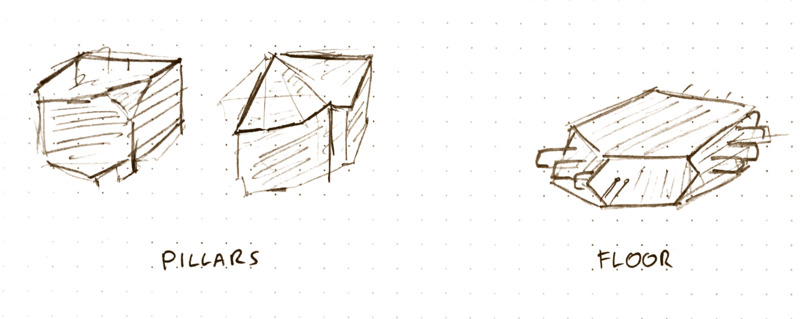 PILLARS
FLOOR